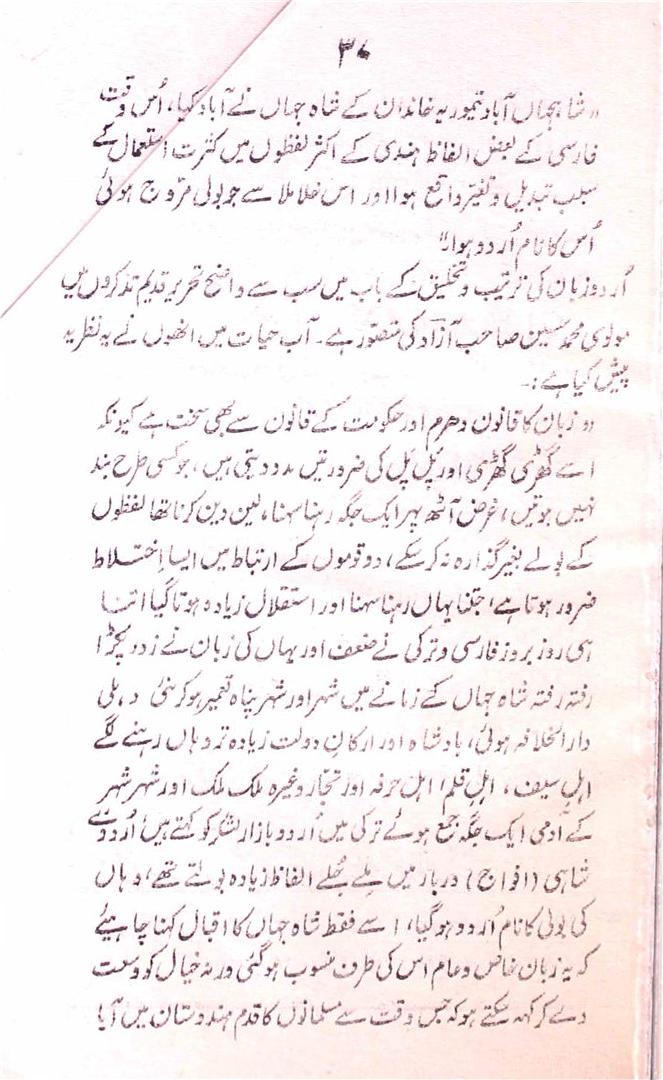 ۳۰
"شاہجہاں آباد تیموریہ خاندان کے شاہ جہاں نے آباد کیا، اُس وقت
فارسی کے بعض الفاظ ہندی کے اکثر لفظوں میں کثرت استعمال کے
سبب تبدیل و تغیر واقع ہوا اور اس خلا ملا سے جو بولی مروج ہوئی
اُس کا نام اُردو ہوا۔"
اُردو زبان کی ترتیب و تخلیق کے باب میں سب سے واضح تحریر قدیم تذکروں میں
مولوی محمد حسین صاحب آزاد کی متصور ہے۔ آب حیات میں انھوں نے یہ نظریہ
پیش کیا ہے:۔
"زبان کا قانون دھرم اور حکومت کے قانون سے بھی سخت ہے کیونکہ
اسے گھڑی گھڑی اور پَل پَل کی ضرورتیں مدد دیتی ہیں، جو کسی طرح بند
نہیں ہوتیں، غرض آٹھ پہر ایک جگہ رہنا سہنا، لین دین کرنا تھا لفظوں
کے بولے بغیر گذارہ نہ کر سکے، دو قوموں کے ارتباط میں ایسا اِختلاط
ضرور ہوتا ہے، جتنا یہاں رہنا سہنا اور استقلال زیادہ ہوتا گیا اتنا
ہی روز بروز فارسی و ترکی نے ضعف اور یہاں کی زبان نے زور پکڑا
رفتہ رفتہ شاہ جہاں کے زمانے میں شہر اور شہر پناہ تعمیر ہو کر نئی دہلی
دار الخلافہ ہوئی، بادشاہ اور ارکانِ دولت زیادہ تر وہاں رہنے لگے
اہلِ سیف، اہلِ قلم، اہلِ حرفہ اور تجّار وغیرہ ملک ملک اور شہر شہر
کے آدمی ایک جگہ جمع ہوئے ترکی میں اُردو بازار لشکر کو کہتے ہیں، اُردوے
شاہی (افواج) دربار میں ملے جُلے الفاظ زیادہ بولتے تھے، وہاں
کی بولی کا نام اُردو ہو گیا، اسے فقط شاہ جہاں کا اقبال کہنا چاہیئے
کہ یہ زبان خاص و عام اس کی طرف منسوب ہو گئی ورنہ خیال کو وسعت
دے کر کہہ سکتے ہو کہ جس وقت سے مسلمانوں کا قدم ہندوستان میں آیا